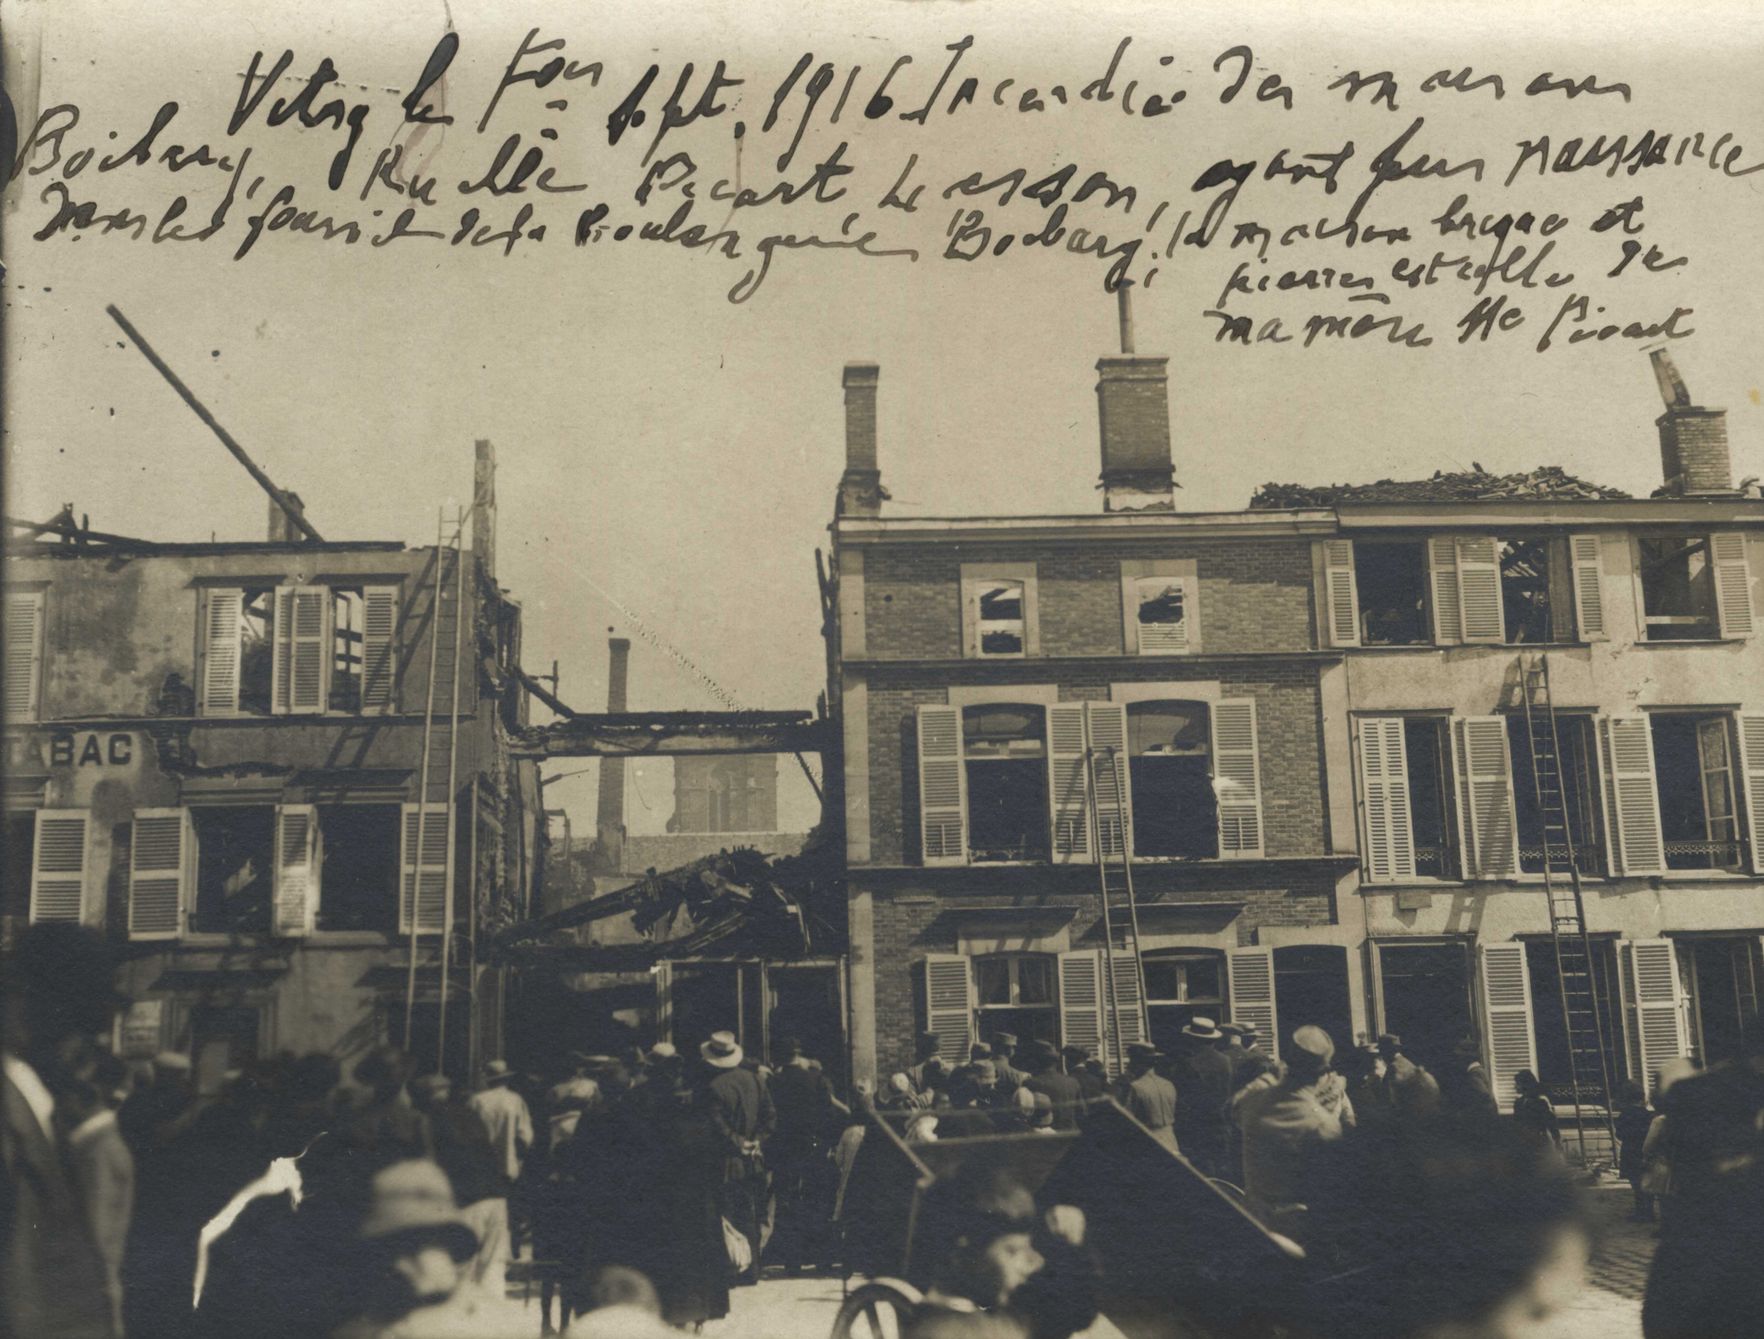 Vitry le Fois Sept. 1916 Incendie des maisons
Boibary, Ruelle Picart Lesson, ayant pris naissance
dans le fournil de la Boulangerie Boibary, la maison brique et
pierres est celle de
ma mère Me Picart
TABAC